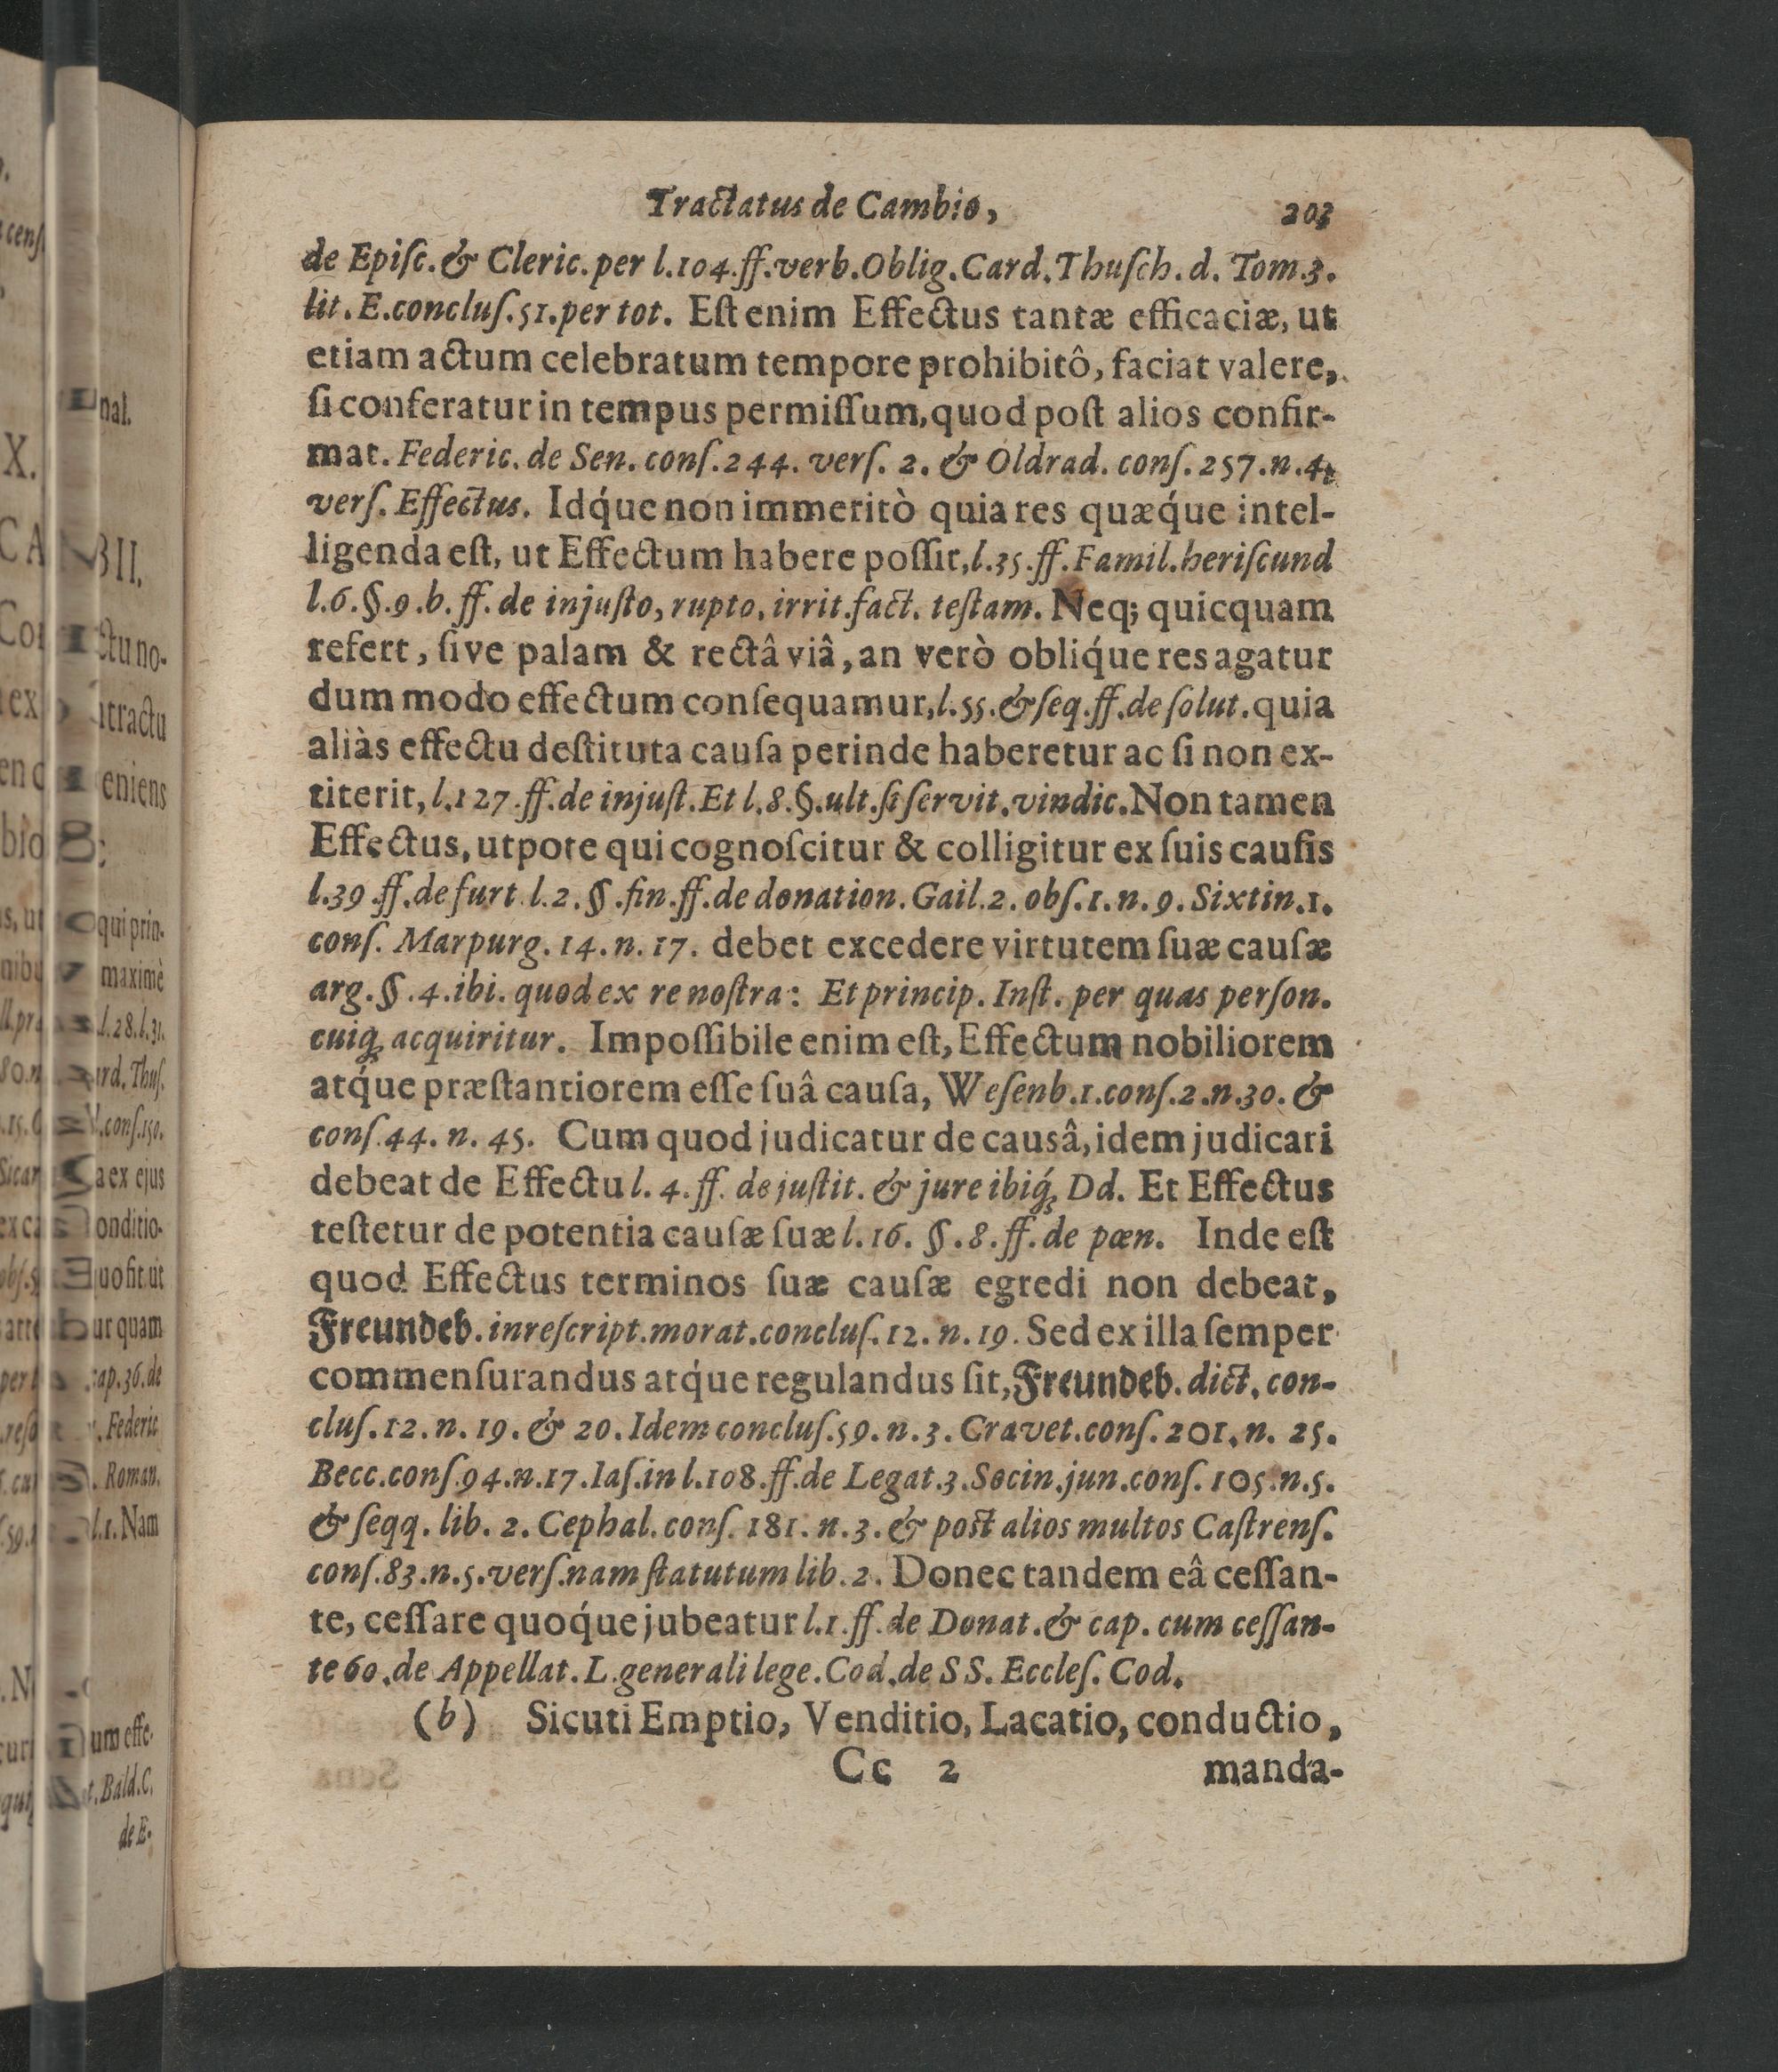 Tractatus de Cambio, 203
de Epiſc. & Cleric. per l. 104. ff. verb. Oblig. Card. Thuſch. d. Tom. 3.
lit. E. concluſ. 51. per tot. Eſt enim Effectus tantæ efficaciæ, ut
etiam actum celebratum tempore prohibitô, faciat valere,
ſi conferatur in tempus permiſſum, quod poſt alios confir-
mat. Federic. de Sen. conſ. 244. verſ. 2. & Oldrad. conſ. 257. n. 4.
verſ. Effectus. Idq́ue non immeritò quia res quæq́ue intel-
ligenda eſt, ut Effectum habere poſſit, l. 35. ff. Famil. heriſcund
l. 6. §. 9. b. ff. de injuſto, rupto, irrit. fact. teſtam. Neq; quicquam
refert, ſive palam & rectâ viâ, an verò obliq́ue res agatur
dum modo effectum conſequamur, l. 55. & ſeq. ff. de ſolut. quia
aliàs effectu deſtituta cauſa perinde haberetur ac ſi non ex-
titerit, l. 127. ff. de injuſt. Et l. 8. §. ult. ſi ſervit. vindic. Non tamen
Effectus, utpote qui cognoſcitur & colligitur ex ſuis cauſis
l. 39 ff. de furt. l. 2. §. fin. ff. de donation. Gail. 2. obſ. 1. n. 9. Sixtin. 1.
conſ. Marpurg. 14. n. 17. debet excedere virtutem ſuæ cauſæ
arg. §. 4. ibi. quod ex re noſtra: Et princip. Inſt. per quas perſon.
cuiq; acquiritur. Impoſſibile enim eſt, Effectum nobiliorem
atq́ue præſtantiorem eſſe ſuâ cauſa, Weſenb. 1. conſ. 2. n. 30. &
conſ. 44. n. 45. Cum quod judicatur de causâ, idem judicari
debeat de Effectu l. 4. ff. de juſtit. & jure ibiq́; Dd. Et Effectus
teſtetur de potentia cauſæ ſuæ l. 16. §. 8. ff. de pœn. Inde eſt
quod Effectus terminos ſuæ cauſæ egredi non debeat,
Freundeb. in reſcript. morat. concluſ. 12. n. 19. Sed ex illa ſemper
commenſurandus atq́ue regulandus ſit, Freundeb. dict. con-
cluſ. 12. n. 19. & 20. Idem concluſ. 59. n. 3. Cravet. conſ. 201. n. 25.
Becc. conſ. 94. n. 17. Iaſ. in l. 108. ff. de Legat. 3. Socin. jun. conſ. 105. n. 5.
& ſeqq. lib. 2. Cephal. conſ. 181. n. 3. & poſt alios multos Caſtrenſ.
conſ. 83. n. 5. verſ. nam ſtatutum lib. 2. Donec tandem eâ ceſſan-
te, ceſſare quoq́ue jubeatur l. 1. ff. de Donat. & cap. cum ceſſan-
te 60. de Appellat. L. generali lege. Cod. de SS. Eccleſ. Cod.
(b) Sicuti Emptio, Venditio, Lacatio, conductio,
Cc 2 manda-
nal.
BII.
ctu no-
itractu
eniens
qui prin-
maximè
l. 28. l. 31.
ard. Thuſ.
conſ. 150.
a ex ejus
onditio-
uo fit ut
ur quam
cap. 36. de
. Federic
. Roman.
l. 1. Nam
um effe-
t. Bald. C.
de E-